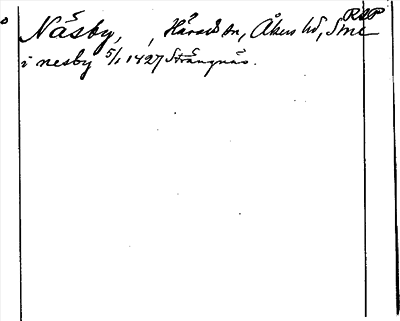 RAP
Näsby, , Härads sn, Åkers hd, Sml
i nesby 5/1 1427 Strängnäs.